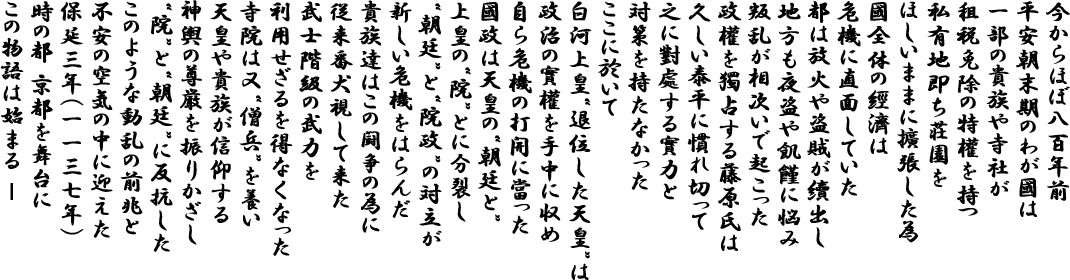 今からほぼ八百年前
平安朝末期のわが國は
一部の貴族や寺社が
租税免除の特權を持つ
私有地即ち荘園を
ほしいままに擴張した為
國全体の經濟は
危機に直面していた
都は放火や盗賊が續出し
地方も夜盗や飢饉に悩み
叛乱が相次いで起こった
政權を獨占する藤原氏は
久しい泰平に慣れ切って
之に對處する實力と
対策を持たなかった
ここに於いて
白河上皇〝退位した天皇〟は
政治の實權を手中に収め
自ら危機の打開に當った
國政は天皇の〝朝廷〟と
上皇の〝院〟とに分裂し
〝朝廷〟と〝院政〟の対立が
新しい危機をはらんだ
貴族達はこの闘争の為に
従来番犬視して来た
武士階級の武力を
利用せざるを得なくなった
寺院は又〝僧兵〟を養い
天皇や貴族が信仰する
神輿の尊厳を振りかざし
〝院〟と〝朝廷〟に反抗した
このような動乱の前兆と
不安の空気の中に迎えた
保延三年(一一三七年)
時の都 京都を舞台に
この物語は始まる ―